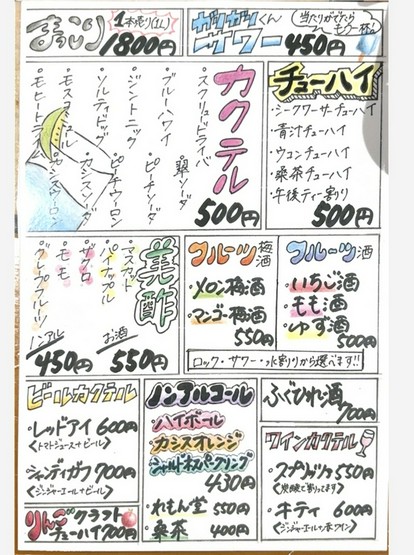 まっこり
1本売り(1L)
1800円
ガリガリくん
サワー 450円
(当たりがでたら
もう一杯)
チューハイ
・シークワーサーチューハイ
・青汁チューハイ
・ウコンチューハイ
・桑茶チューハイ
・午後ティー割り
500円
カクテル
500円
・スクリュードライバー
・翠ソーダ
・ブルーハワイ
・ピーチソーダ
・ジントニック
・ピーチウーロン
・ソルティドッグ
・カシスソーダ
・モスコミュール
・カシスウーロン
・モヒート
美酢
・マスカット
・パイナップル
・ザクロ
・もも
・グレープフルーツ
ノンアル
450円
お酒
550円
フルーツ梅酒
・メロン梅酒
・マンゴー梅酒
550円
フルーツ酒
・いちご酒
・もも酒
・ゆず酒
500円
ロック・サワー・水割りから選べます!!
ビールカクテル
・レッドアイ 600円
<トマトジュース+ビール>
・シャンディガフ 700円
<ジンジャーエール+ビール>
りんごクラフト
チューハイ 700円
ノンアルコール
・ハイボール
・カシスオレンジ
・シャルドネスパークリング
430円
・れもん堂 550円
・桑茶 400円
ふぐひれ酒
700円
ワインカクテル
・スプリッツァ 550円
<炭酸で割ってます>
・キティ 600円
<ジンジャーエール+赤ワイン>